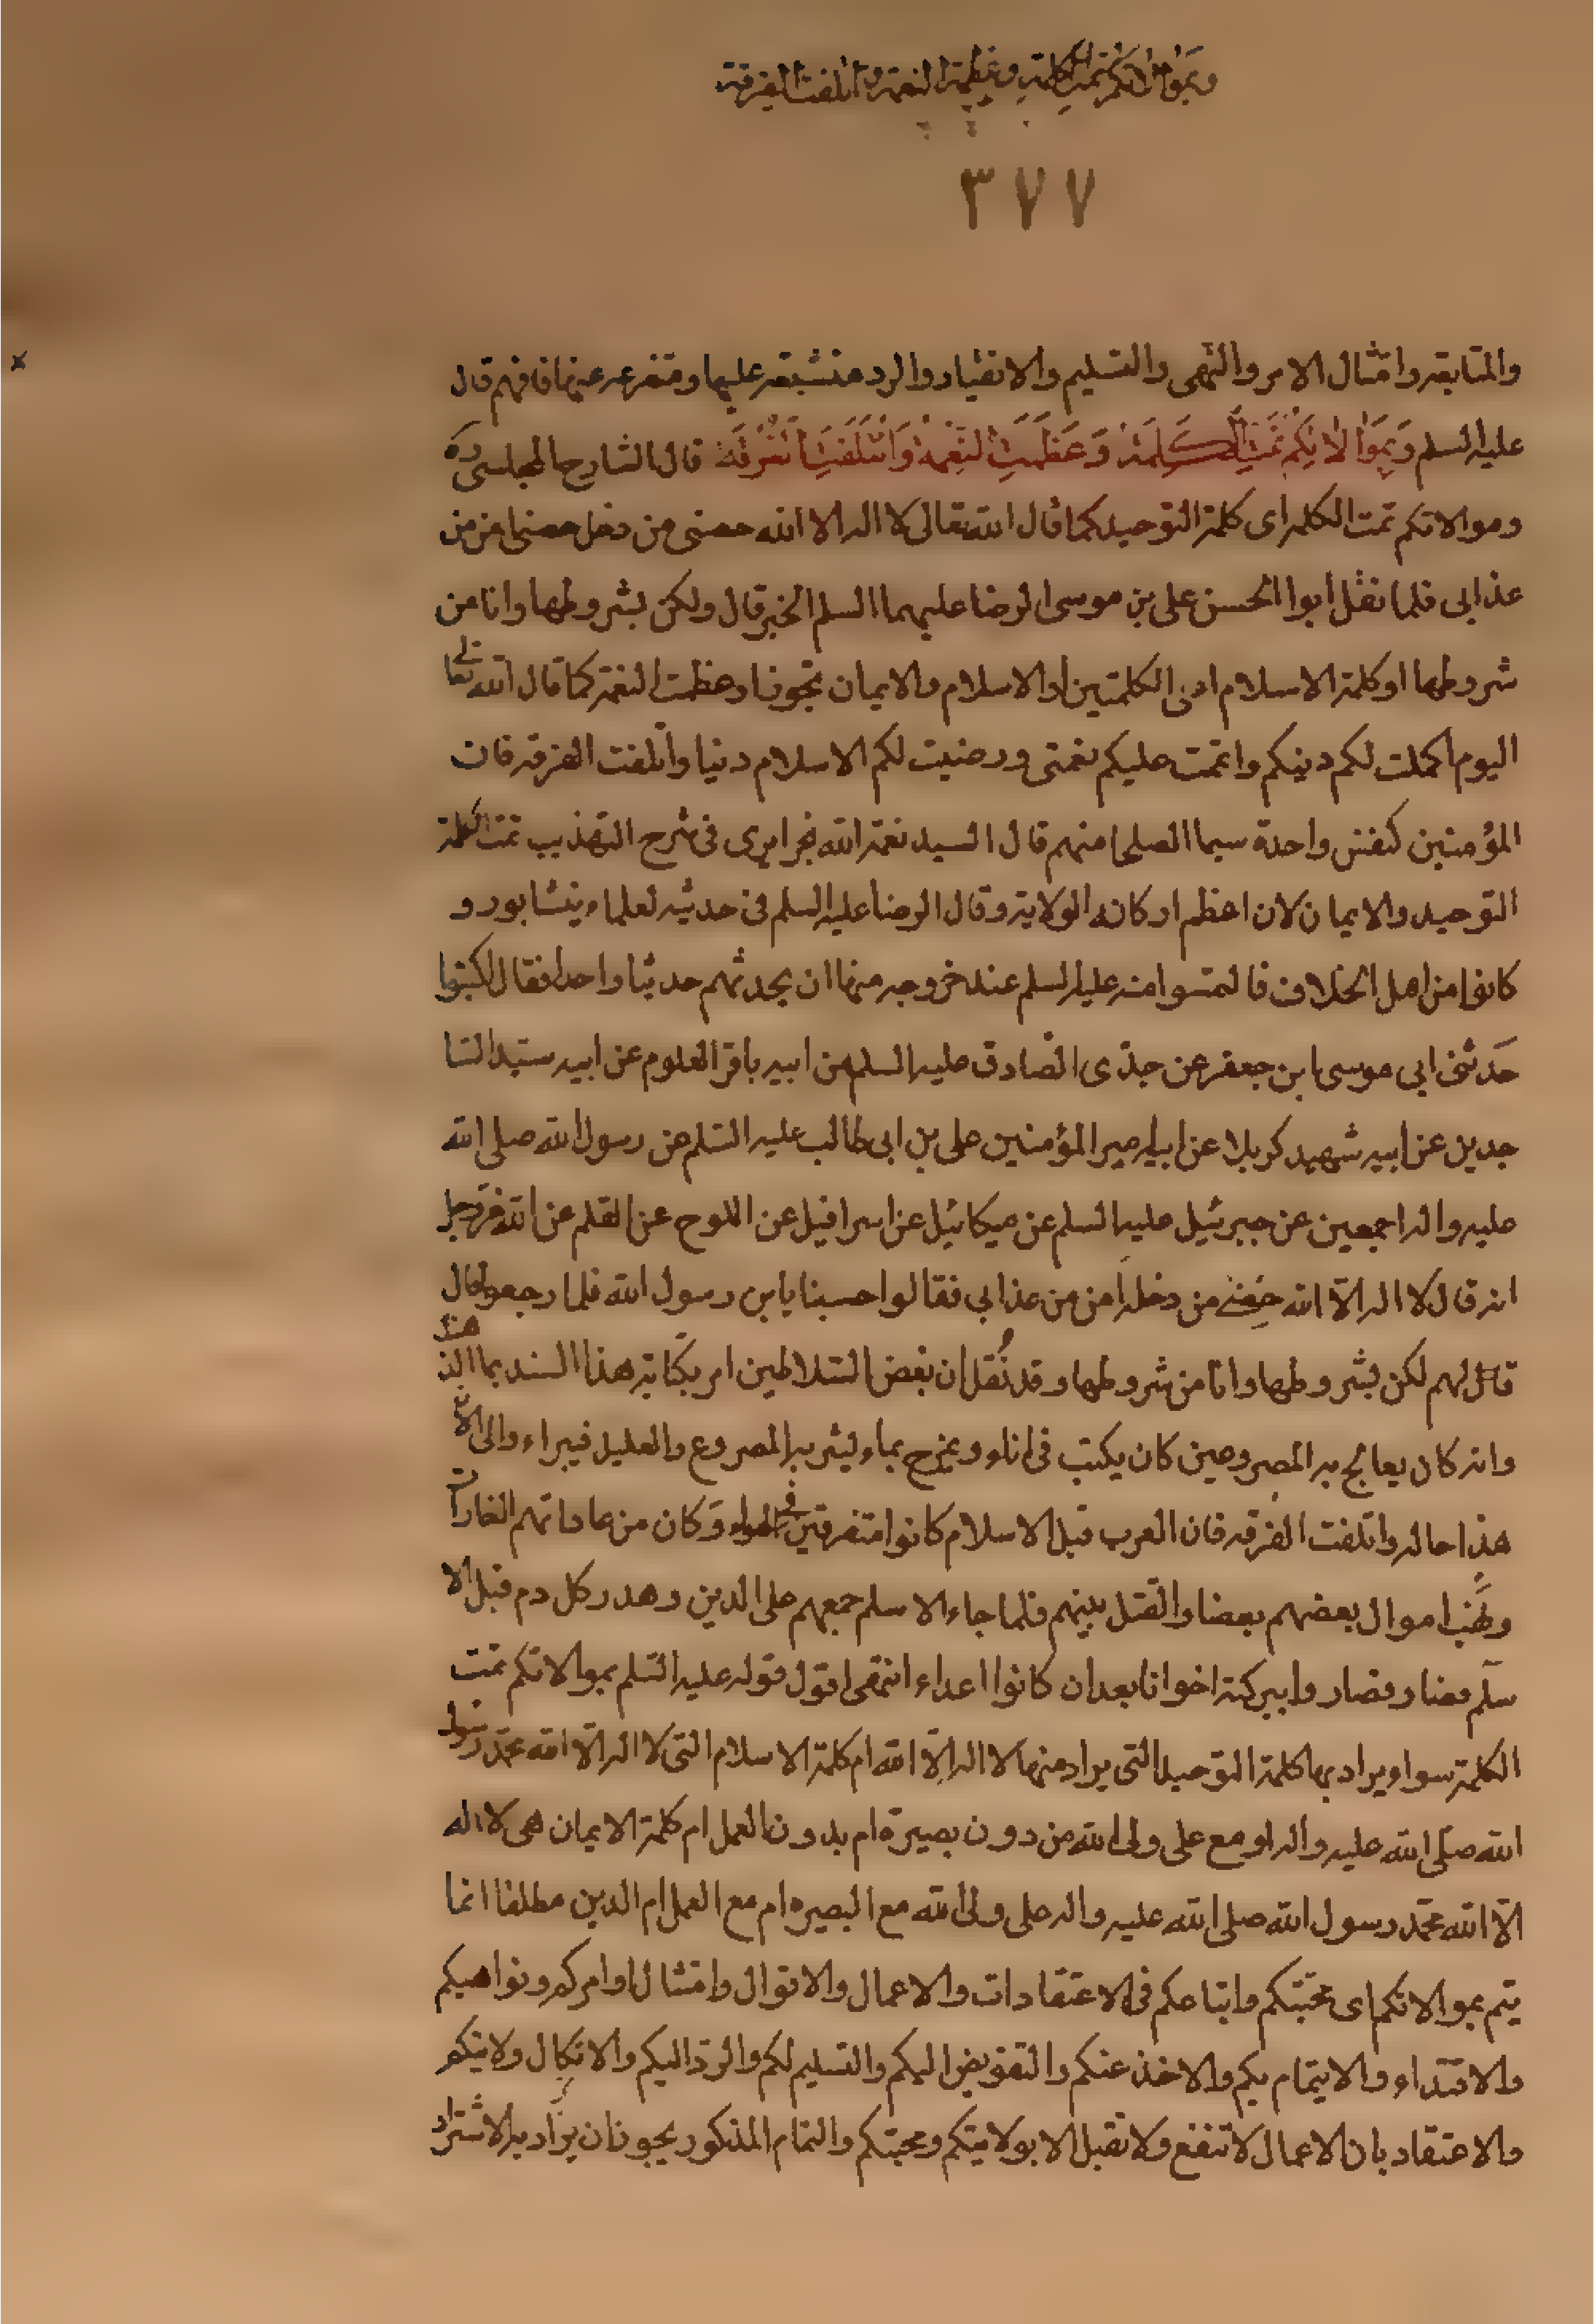 وبموالاتكم تمت الكلمة وعظمت النعمة وائتلفت الفرقة
٣٧٧
والمتابعة وامتثال الامر والنهى والتسليم والانقياد والرد منشبعة عليها ومتفرعه عنها فافهم قال
عليه السلم وَبِمَوٰالاٰتِكُمْ تَمَّتِ الْكَلِمَةُ وَعَظُمَتِ النِّعْمَةُ وَائْتَلَفَتِ الْفُرْقَةُ قال الشارح المجلسى ره
وموالاتكم تمت الكلمه اى كلمة التوحيد كما قال الله تعالى لا اله الا الله حصنى من دخل حصنى امن من
عذابى فلما نقل ابوا الحسن على بن موسى الرضا عليهما السلم الخبر قال ولكن بشروطها وانا من
شروطها او كلمة الاسلام ادنى الكلمتين اد الاسلام والايمان تجوزا وعظمت النعمة كما قال الله تعالى
اليوم اكملت لكم دينكم واتممت عليكم نعمتى ورضيت لكم الاسلام دينا وائلفت الفرقه فان
المؤمنين كنفس واحدة سيما الصلحا منهم قال السيد نعمة الله جزايرى فى شرح التهذيب تمت الكلمة
التوحيد والايمان لان اعظم اركانه الولاية وقال الرضا عليه السلم فى حديثه لعلماء نيشابور و
كانوا من اهل الخلاف فالتمسوا منه عليه السلم عند خروجه منها ان يحدثهم حديثا واحدا فقال اكتبوا
حَدثنى ابى موسى ابن جعفر عن جدّى الصّادق عليه السلم عن ابيه باقر العلوم عن ابيه سيّد السا
جدين عن ابيه شهيد كربلا عن ابيه امير المؤمنين على بن ابى طالب عليه السّلم عن رسول الله صلى الله
عليه واله اجمعين عن جبرئيل عليه السلم عن ميكائيل عن اسرافيل عن اللوح عن القلم عن الله عز وجل
انه قال لا اله الاّ الله حِصْنى من دخله امن من عذابى فقالوا حسبنا يا بن رسول الله فلما رجعوا قال
قال لهم لكن بشروطها وانا من شروطها وقد نُقل ان بعض السّلاطين امر بكتابة هذا السند بماء الذهب
وانه كان يعالج به المصروعين كان يكتب فى اناء ويمزج بماء ليشربه المصروع والعليل فيبراء والى الان
هذا حاله وائلفت الفرقه فان العرب قبل الاسلام كانوا متفرقين فى الهواء وكان من عاداتهم الغارات
ونهب اموال بعضهم بعضا والقتل بينهم فلما جاء الاسلم جمعهم على الدين وهدر كل دم قبل الا
سلّم فصار وا ببركته اخوانا بعد ان كانوا اعداء انتهى اقول قوله عليه السّلم بموالاتكم تمت
الكلمة سواء يراد بها كلمة التوحيد التى يراد منها لا اله الاّ الله ام كلمة الاسلام التى لا اله الاّ الله محمّد رسول
الله صلّى الله عليه واله او مع على ولى الله من دون بصيرة ام بدون العمل ام كلمة الايمان هى لا اله
الاّ الله محمّد رسول الله صلى الله عليه واله على ولى الله مع البصيره ام مع العمل ام الدين مطلقا انما
يتم بموالاتكم اى محبّتكم واتباعكم فى الاعتقادات والاعمال والاقوال وامتثال اوامركم ونواهيكم
والاقتداء والايتمام بكم والاخذ عنكم والتفويض اليكم والتسليم لكم والردّ اليكم والاتكال ولايتكم
والاعتقاد بان الاعمال لا تنفع ولا تقبل الا بولايتكم ومحبتكم والتمام المذكور يجوز ان يراد به الاشتراد